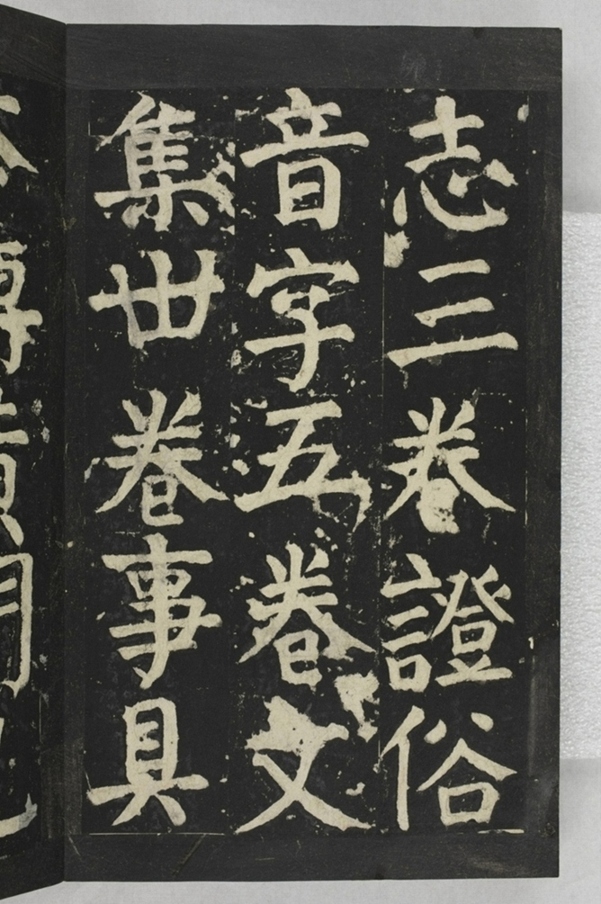 志三卷證俗
音字五卷文
集丗卷事具